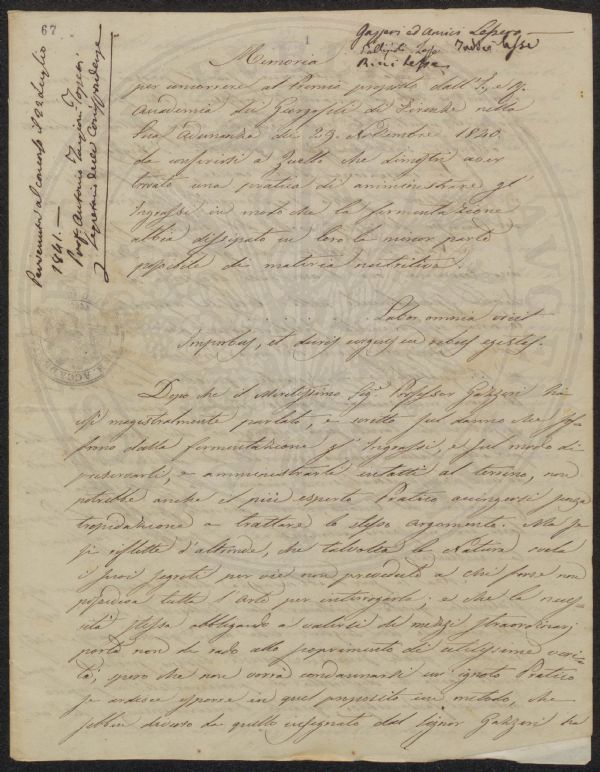 67
1
Gazzeri ed Amici Lessero
Taddei lesse
Ricci lesse
Pervenuta al concorso il 22 Luglio
1841. —
Prof. Antonio Targioni Tozzetti
Segretario delle Corrispondenze
Memoria
per concorrere al Premio proposto dall'I. e R.
Accademia dei Georgofili di Firenze nella
sua Adunanza de' 29. Novembre 1840.
da conferirsi a Quello che dimostri aver
trovato una pratica di amministrare gl'
Ingrassi in modo che la fermentazione
abbia dissipato in loro la minor parte
possibile di materia nutritiva.
. . . . . . Labor omnia vincit
Improbus, et duris urgens in rebus egestas.
Dopo che il Meritissimo Sig. Professor Gazzeri ha
sì magistralmente parlato, e scritto sul danno che sof-
frono dalla fermentazione gl'Ingrassi, e sul modo di
preservarli, e amministrarli intatti al terreno, non
potrebbe anche il più esperto Pratico accingersi senza
trepidazione a trattare lo stesso argomento. Ma se
si riflette d'altronde, che talvolta la Natura svela
i suoi segreti per vie non prevedute a chi forse non
possedeva tutta l'Arte per interrogarla; e che la neces-
sità stessa obbligando a valersi di mezzi straordinarj
porta non di rado allo scoprimento di utilissime veri-
tà, spero che non vorrà condannarsi un ignoto Pratico
se ardisce esporre in quel proposito un metodo, che
sebbin diverso da quello insegnato dal Signor Gazzeri ha